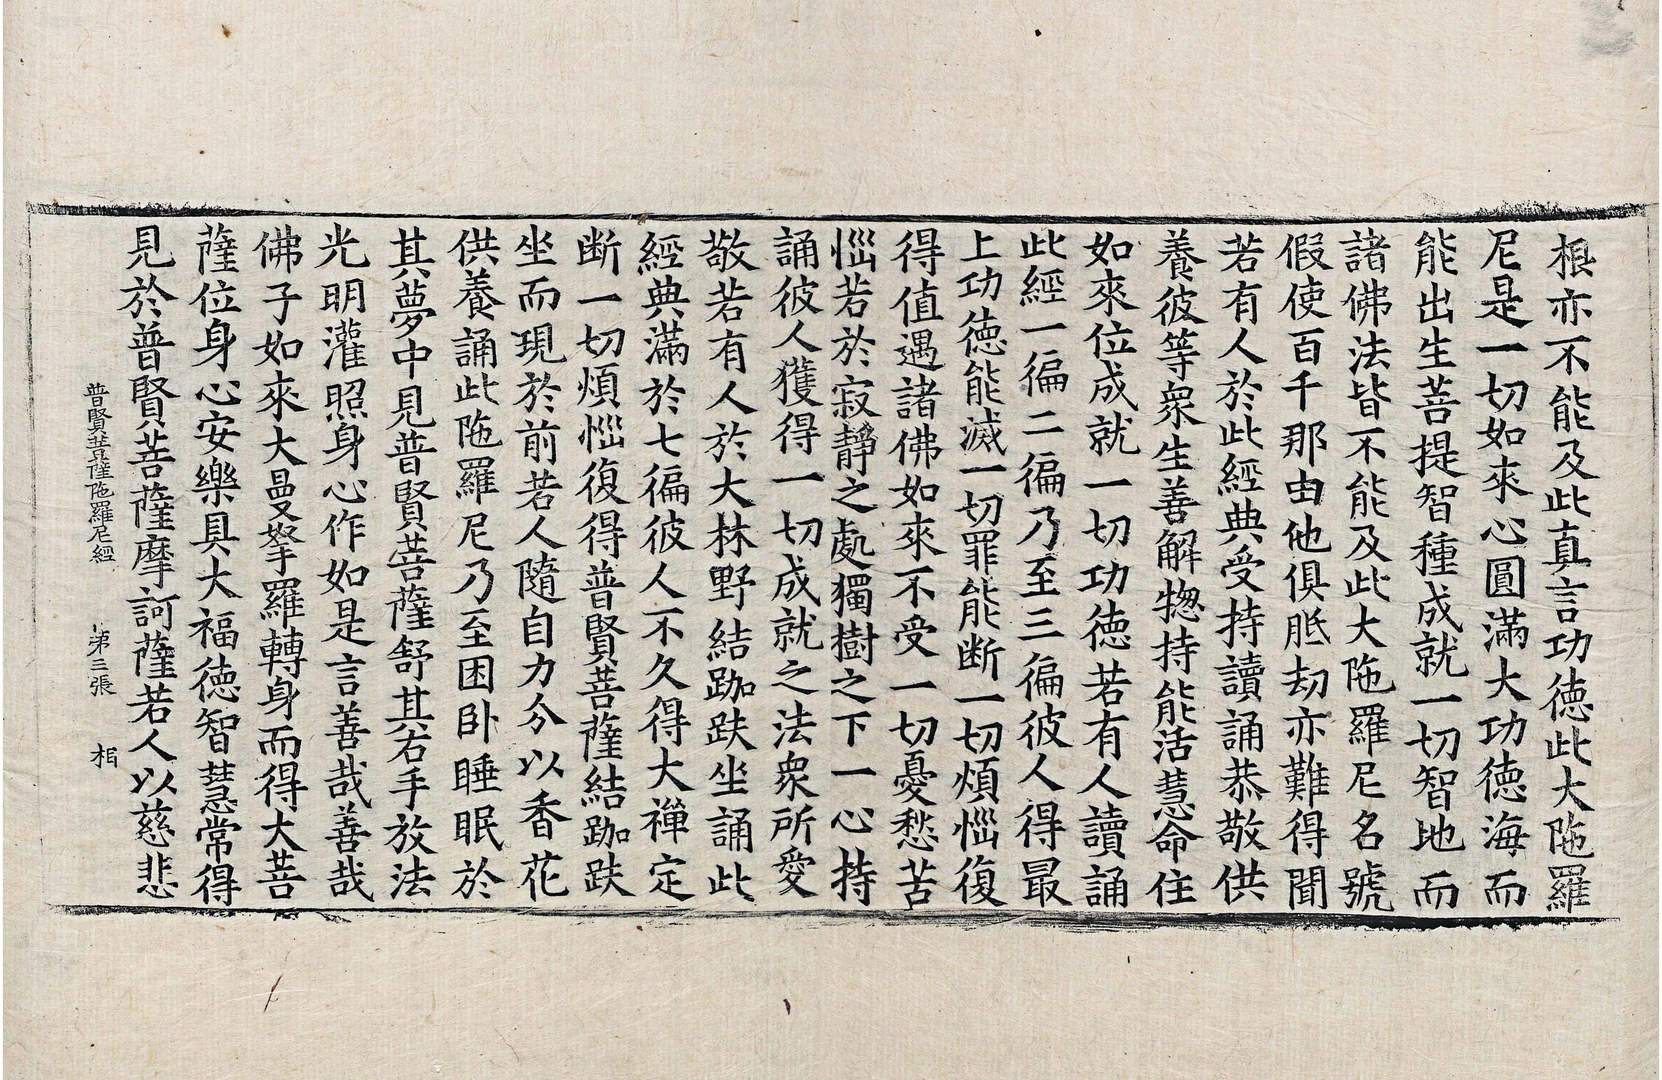 根亦不能及此真言功德此大陁羅
尼是一切如來心圓滿大功德海而
能出生菩提智種成就一切智地而
諸佛法皆不能及此大陁羅尼名號
假使百千那由他俱胝劫亦難得聞
若有人於此經典受持讀誦恭敬供
養彼等衆生善解惣持能活慧命住
如來位成就一切功德若有人讀誦
此經一徧二徧乃至三徧彼人得最
上功德能滅一切罪能断一切煩惱復
得值遇諸佛如來不受一切憂愁苦
惱若於寂靜之處獨樹之下一心持
誦彼人獲得一切成就之法衆所愛
敬若有人於大林野結跏趺坐誦此
經典滿於七徧彼人不久得大禪定
断一切煩惱復得普賢菩薩結跏趺
坐而現於前若人隨自力分以香花
供養誦此陁羅尼乃至困卧睡眠於
其夢中見普賢菩薩舒其右手放法
光明灌照身心作如是言善哉善哉
佛子如來大曼拏羅轉身而得大菩
薩位身心安樂具大福德智慧常得
見於普賢菩薩摩訶薩若人以慈悲
普賢菩薩陁羅尼經 第三張 相